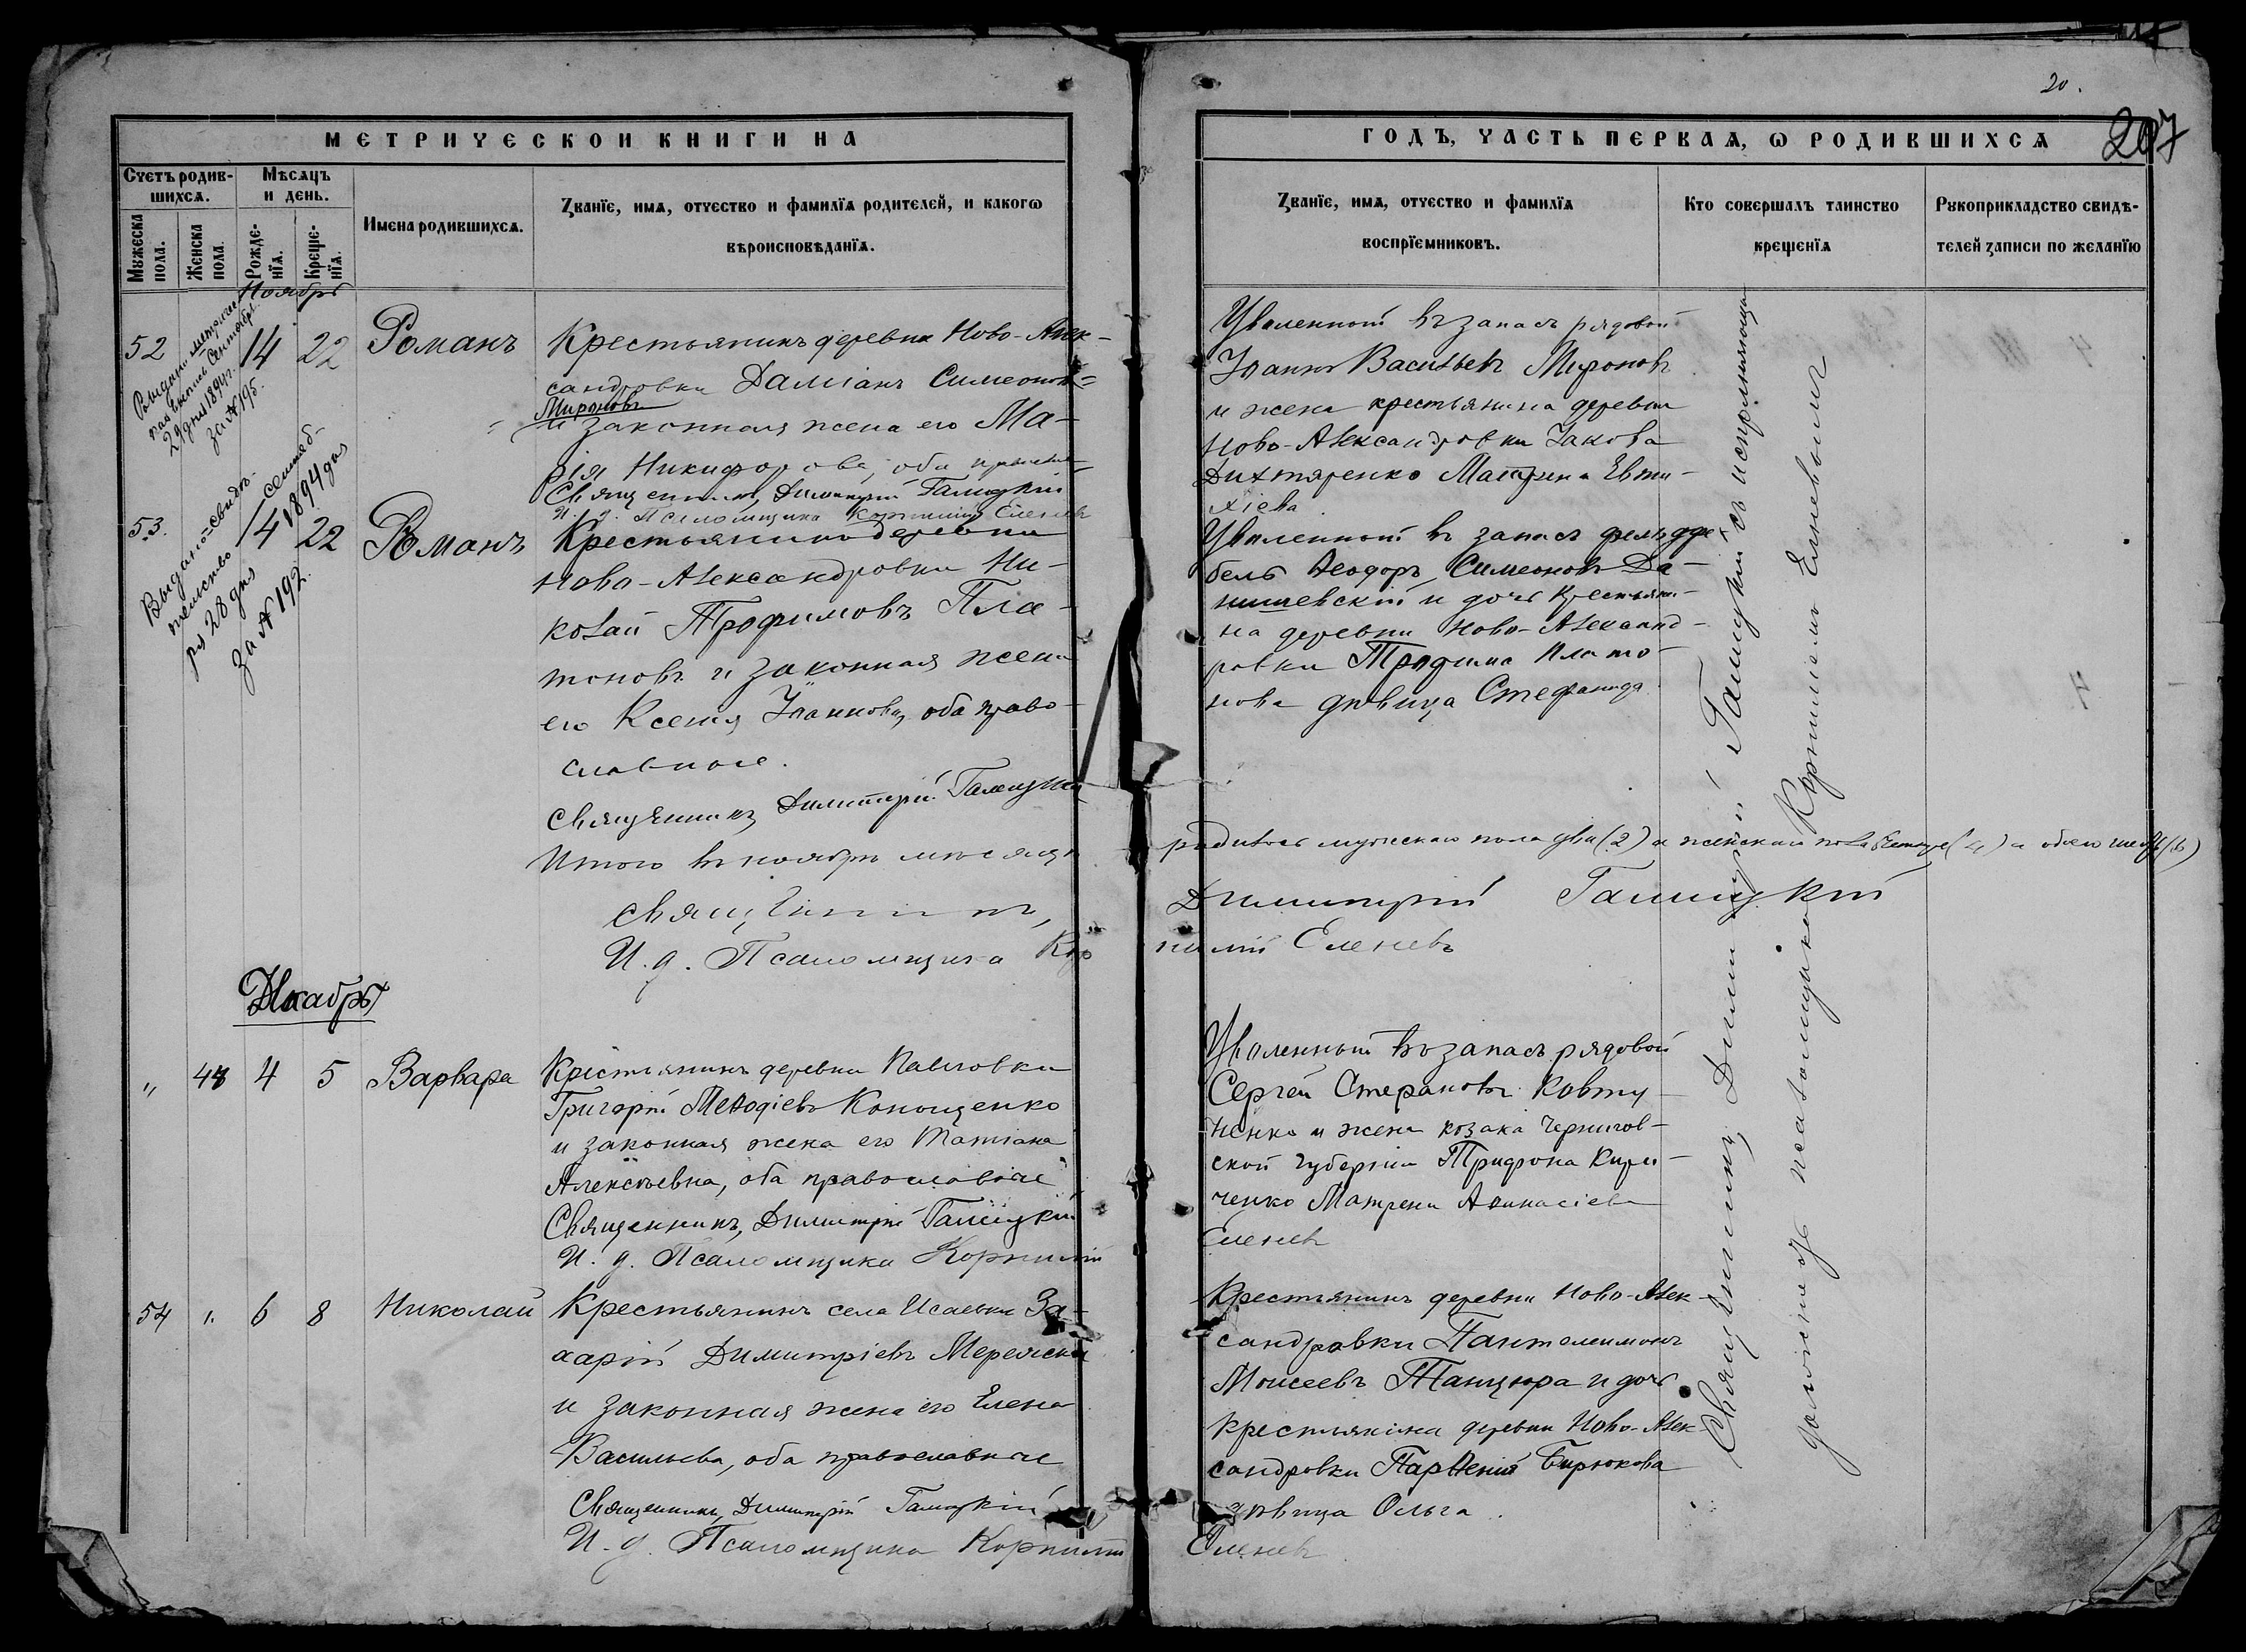 20.
207
МЕТРИЧЕСКОИ КНИГИ НА
ГОДЪ, ЧАСТЬ ПЕРВАѦ, Ѡ РОДИВШИХСѦ
Счетъ родив-
шихсѧ.
Мѣсѧцъ
и день.
Мꙋжеска
пола.
Женска
пола.
Рожде-
нїѧ.
Креще-
нїѧ.
Имена родившихсѧ.
Званїе, имѧ, отчество и фамилїѧ родителей, и какогѡ
вѣроисповѣданїѧ.
Званїе, имѧ, отчество и фамилїѧ
воспрїемниковъ.
Кто совершалъ таинство
крещенїѧ
Рꙋкоприкладство свидѣ-
телей записи по желанїю
Ноябрь
52
14
22
Романъ
29 дня 1894 г.
за № 195.
Крестьянинъ деревни Ново-Алек-
сандровки Даміанъ Симеоновъ
Мироновъ
и законная жена его Ма-
рія Никифорова, оба
Священникъ Димитрій Галицкій
И. д. Псаломщика Корнилій Еленевъ
Уволенный въ запасъ рядовой
Іоаннъ Васильевъ Мироновъ
и жена крестьянина деревни
Ново-Александровки Іакова
Дихтяренко Матрона Евти-
хіева
53.
14
22
Романъ
Выдано свидѣ-
тельство сентяб-
ря 28 дня 1894 года
за № 192.
Крестьянинъ деревни
Ново-Александровки Ни-
колай Трофимовъ Пла-
тоновъ и законная жена
его Ксенія Іоаннова, оба право-
славные.
Священникъ Димитрій Галицкій
Уволенный въ запасъ фельдфе-
бель Ѳеодоръ Симеоновъ Да-
нишевскій и дочь крестьяни-
на деревни Ново-Александ-
ровки Трофима Плато-
нова дѣвица Стефанида.
Итого въ ноябрѣ мѣсяцѣ родилось мужескаго пола два (2) и женскаго пола четыре (4) а обоего шесть (6)
Священникъ, Димитрій Галицкій
И. д. Псаломщика Корнилій Еленевъ
Декабрь
"
48
4
5
Варвара
Крестьянинъ деревни Павловки
Григорій Меѳодіевъ Конощенко
и законная жена его Татіана
Алексѣевна, оба православные
Священникъ, Димитрій Галицкій
И. д. Псаломщика Корнилій Еленевъ
Уволенный въ запасъ рядовой
Сергѣй Стефановъ Ковту-
ненко и жена козака Чернигов-
ской губерніи Трифона Кири-
ченко Матрена Аѳанасіева
54
"
6
8
Николай
Крестьянинъ села Исаевки За-
харій Димитріевъ Мережскій
и законная жена его Елена
Васильева, оба православные
Священникъ, Димитрій Галицкій
И. д. Псаломщика Корнилій Еленевъ
Крестьянинъ деревни Ново-Алек-
сандровки Пантелеимонъ
Моисеевъ Танцюра и дочь
крестьянина деревни Ново-Алек-
сандровки Парѳенія Бирюкова
дѣвица Ольга.
Священникъ, Димитрій Галицкій съ исполняющимъ
должность псаломщика Корниліемъ Еленевымъ